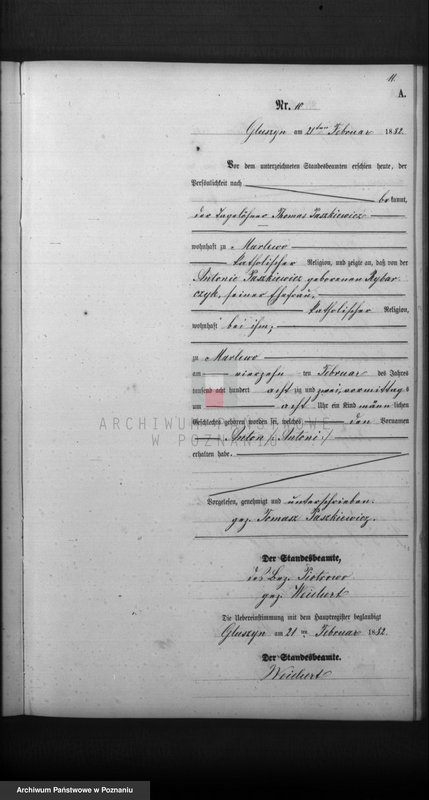 11.
A.
Nr. 10
Gluszyn am 21ten Februar 1882.
Vor dem unterzeichneten Standesbeamten erschien heute, der
Persönlichkeit nach
bekannt,
der Tagelöhner Thomas Paszkiewicz
wohnhaft zu Marlewo
katholischer Religion, und zeigte an, daß von der
Antonie Paszkiewicz geborenen Rybar
czyk, seiner Ehefrau,
katholischer Religion,
wohnhaft bei ihm,
zu Marlewo
am vierzehn ten Februar des Jahres
tausend acht hundert acht zig und zwei, vormittag s
um acht Uhr ein Kind männ lichen
Geschlechts geboren worden sei, welches den Vornamen
Anton /: Antoni :/
erhalten habe.
Vorgelesen, genehmigt und unterschrieben.
gez. Tomasz Paszkiewicz.
Der Standesbeamte,
des Bez. Piotrowo
gez. Weichert
Die Uebereinstimmung mit dem Hauptregister beglaubigt
Gluszyn am 21 ten Februar 1882.
Der Standesbeamte.
Weichert
ARCHIWUM PAŃSTWOWE
W POZNANIU
Archiwum Państwowe w Poznaniu